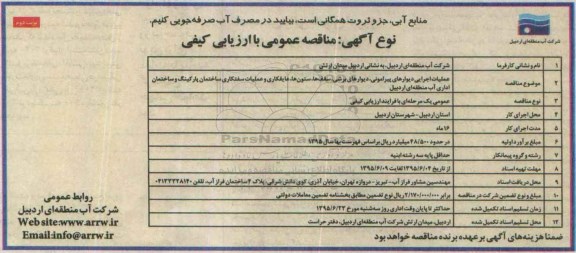 منابع آبی، جزو ثروت همگانی است، بیایید در مصرف آب صرفه‌جویی کنیم.
نوع آگهی: مناقصه عمومی با ارزیابی کیفی
شرکت آب منطقه‌ای اردبیل
۱ نام و نشانی کارفرما شرکت آب منطقه‌ای اردبیل، به نشانی اردبیل میدان ارتش
۲ موضوع مناقصه عملیات اجرایی دیوارهای پیرامونی، دیوارهای برشی، سقف‌ها، ستون‌ها، عایقکاری و عملیات سفتکاری ساختمان پارکینگ و ساختمان اداری آب منطقه‌ای اردبیل
۳ نوع مناقصه عمومی یک مرحله‌ای با فرایند ارزیابی کیفی
۴ محل اجرای کار استان اردبیل - شهرستان اردبیل
۵ مدت اجرای کار ۱۶ ماه
۶ مبلغ برآورد اولیه در حدود ۴۸/۵۰۰ میلیارد ریال بر اساس فهرست بها سال ۱۳۹۵
۷ رشته و گروه پیمانکار حداقل پایه سه رشته ابنیه
۸ مهلت تهیه اسناد از تاریخ ۱۳۹۵/۶/۰۴ لغایت ۱۳۹۵/۶/۰۹
۹ محل دریافت اسناد مهندسین مشاور فراز آب - تبریز - دروازه تهران، خیابان آذری، کوی دانش شرقی، پلاک ۴ ساختمان فراز آب، تلفن ۰۴۱۳۳۳۲۸۱۴۰
۱۰ مبلغ و نوع تضمین شرکت در مناقصه برابر ۲/۱۷۰/۰۰۰/۰۰۰ ریال نوع تضمین مطابق بخشنامه تضمین معاملات دولتی
۱۱ زمان تسلیم اسناد تکمیل شده حداکثر تا پایان وقت اداری روز سه‌شنبه مورخ ۱۳۹۵/۶/۲۳
۱۲ محل تسلیم اسناد تکمیل شده اردبیل، میدان ارتش شرکت آب منطقه‌ای اردبیل، دفتر حراست
ضمنا هزینه‌های آگهی بر عهده برنده مناقصه خواهد بود
روابط عمومی
شرکت آب منطقه‌ای اردبیل
Web site:www.arrw.ir
Email:info@arrw.ir
ParsNamadData